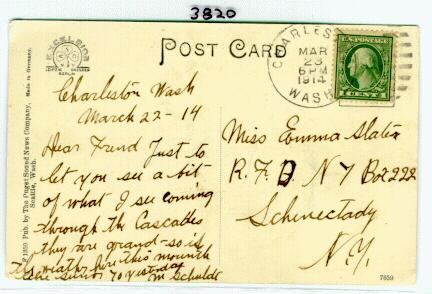 3820
POST CARD
EXCELSIOR
BERLIN
CHARLES
MAR
23
6 PM
1914
WASH
1 CENT 1
Made in Germany.
№ 1350 Pub. by The Puget Sound News Company,
Seattle, Wash.
Charleston Wash
March 22-14
Dear Frend Just to
let you see a bit
of what I see coming
through the Cascades
they are grand-so is
the weather here this mounth
70 yestoday
M Schuldt
Miss Emma Slater
R. F. D N 7 Box 222
Schenectady
N.Y.
7659